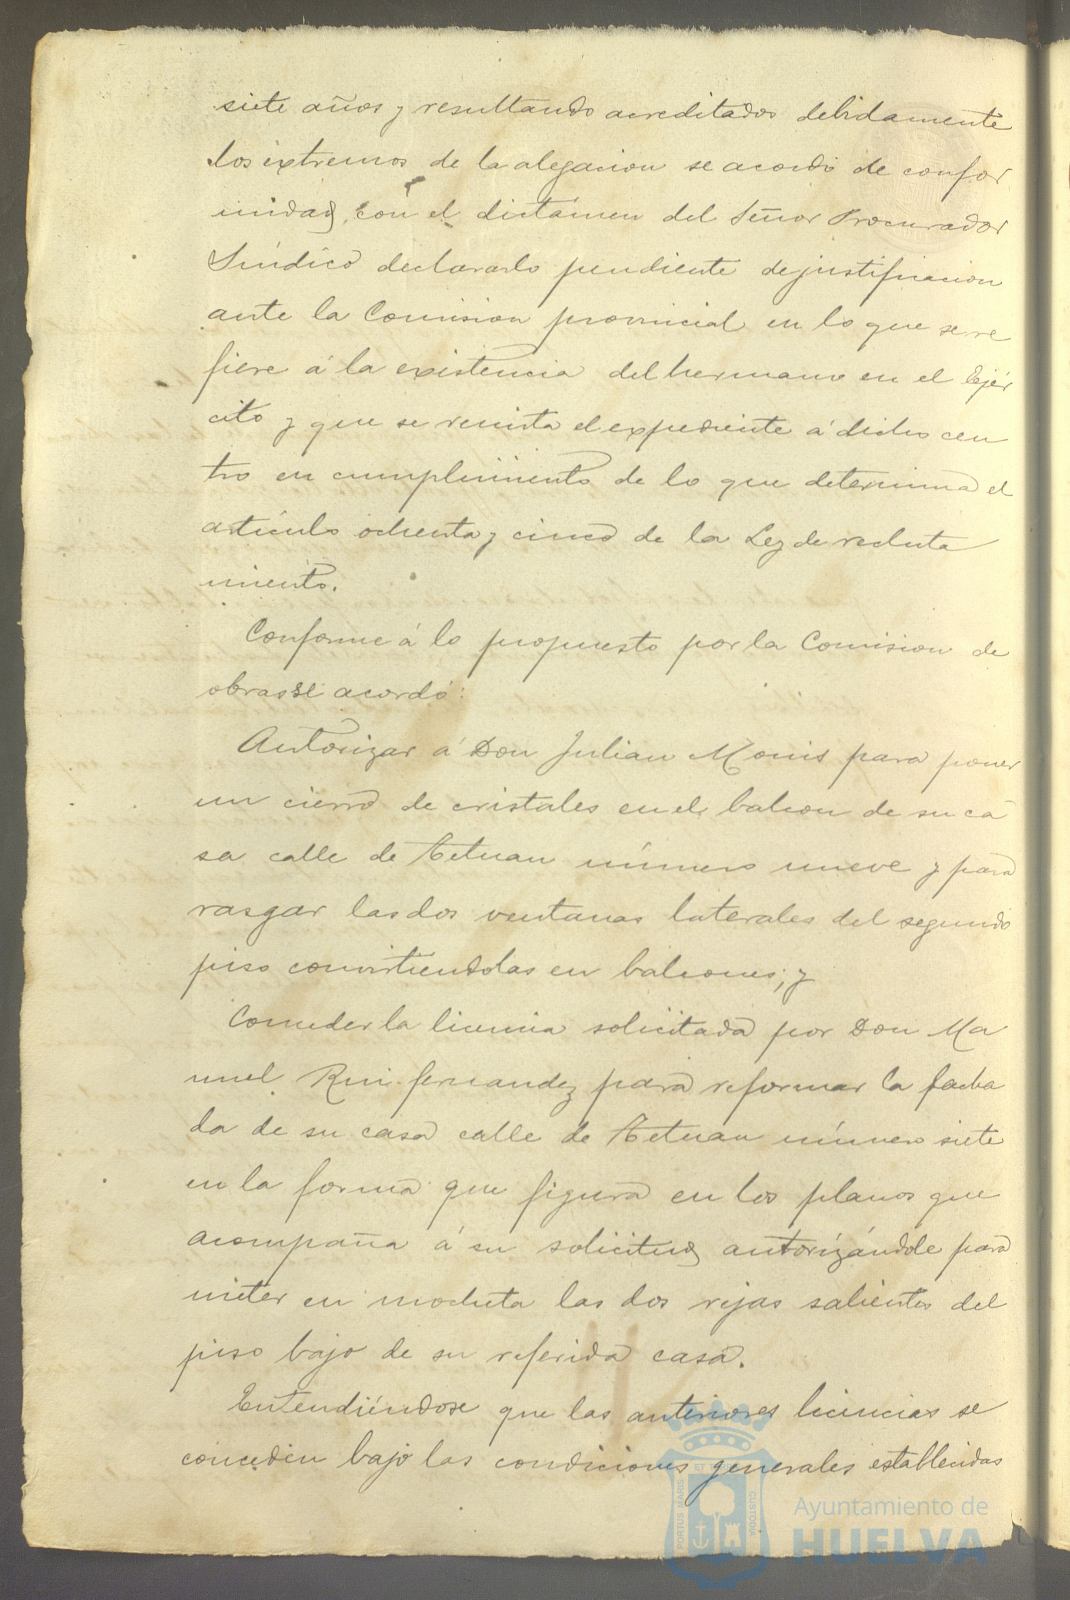 siete años y resultando acreditados debidamente
los extremos de la alegacion se acordó de confor
midad con el dictámen del Señor Procurador
Síndico declararlo pendiente de justificacion
ante la Comision provincial en lo que se re
fiere á la existencia del hermano en el Ejér
cito y que se remita el expediente á dicho cen
tro en cumplimiento de lo que determina el
artículo ochenta y cinco de la Ley de recluta
miento.
Conforme á lo propuesto por la Comision de
obras se acordó:
Autorizar á Don Julian Monis para poner
un cierro de cristales en el balcon de su ca
sa calle de Tetuan número nueve y para
rasgar las dos ventanas laterales del segundo
piso convirtiendolas en balcones; y
Conceder la licencia solicitada por Don Ma
nuel Rui-fernandez para reformar la facha
da de su casa calle de Tetuan número siete
en la forma que figura en los planos que
acompaña á su solicitud autorizándole para
meter en mocheta las dos rejas salientes del
piso bajo de su referida casa.
Entendiéndose que las anteriores licencias se
conceden bajo las condiciones generales establecidas
PORTUS MARIS ET TERRAE CUSTODIA
Ayuntamiento de
HUELVA